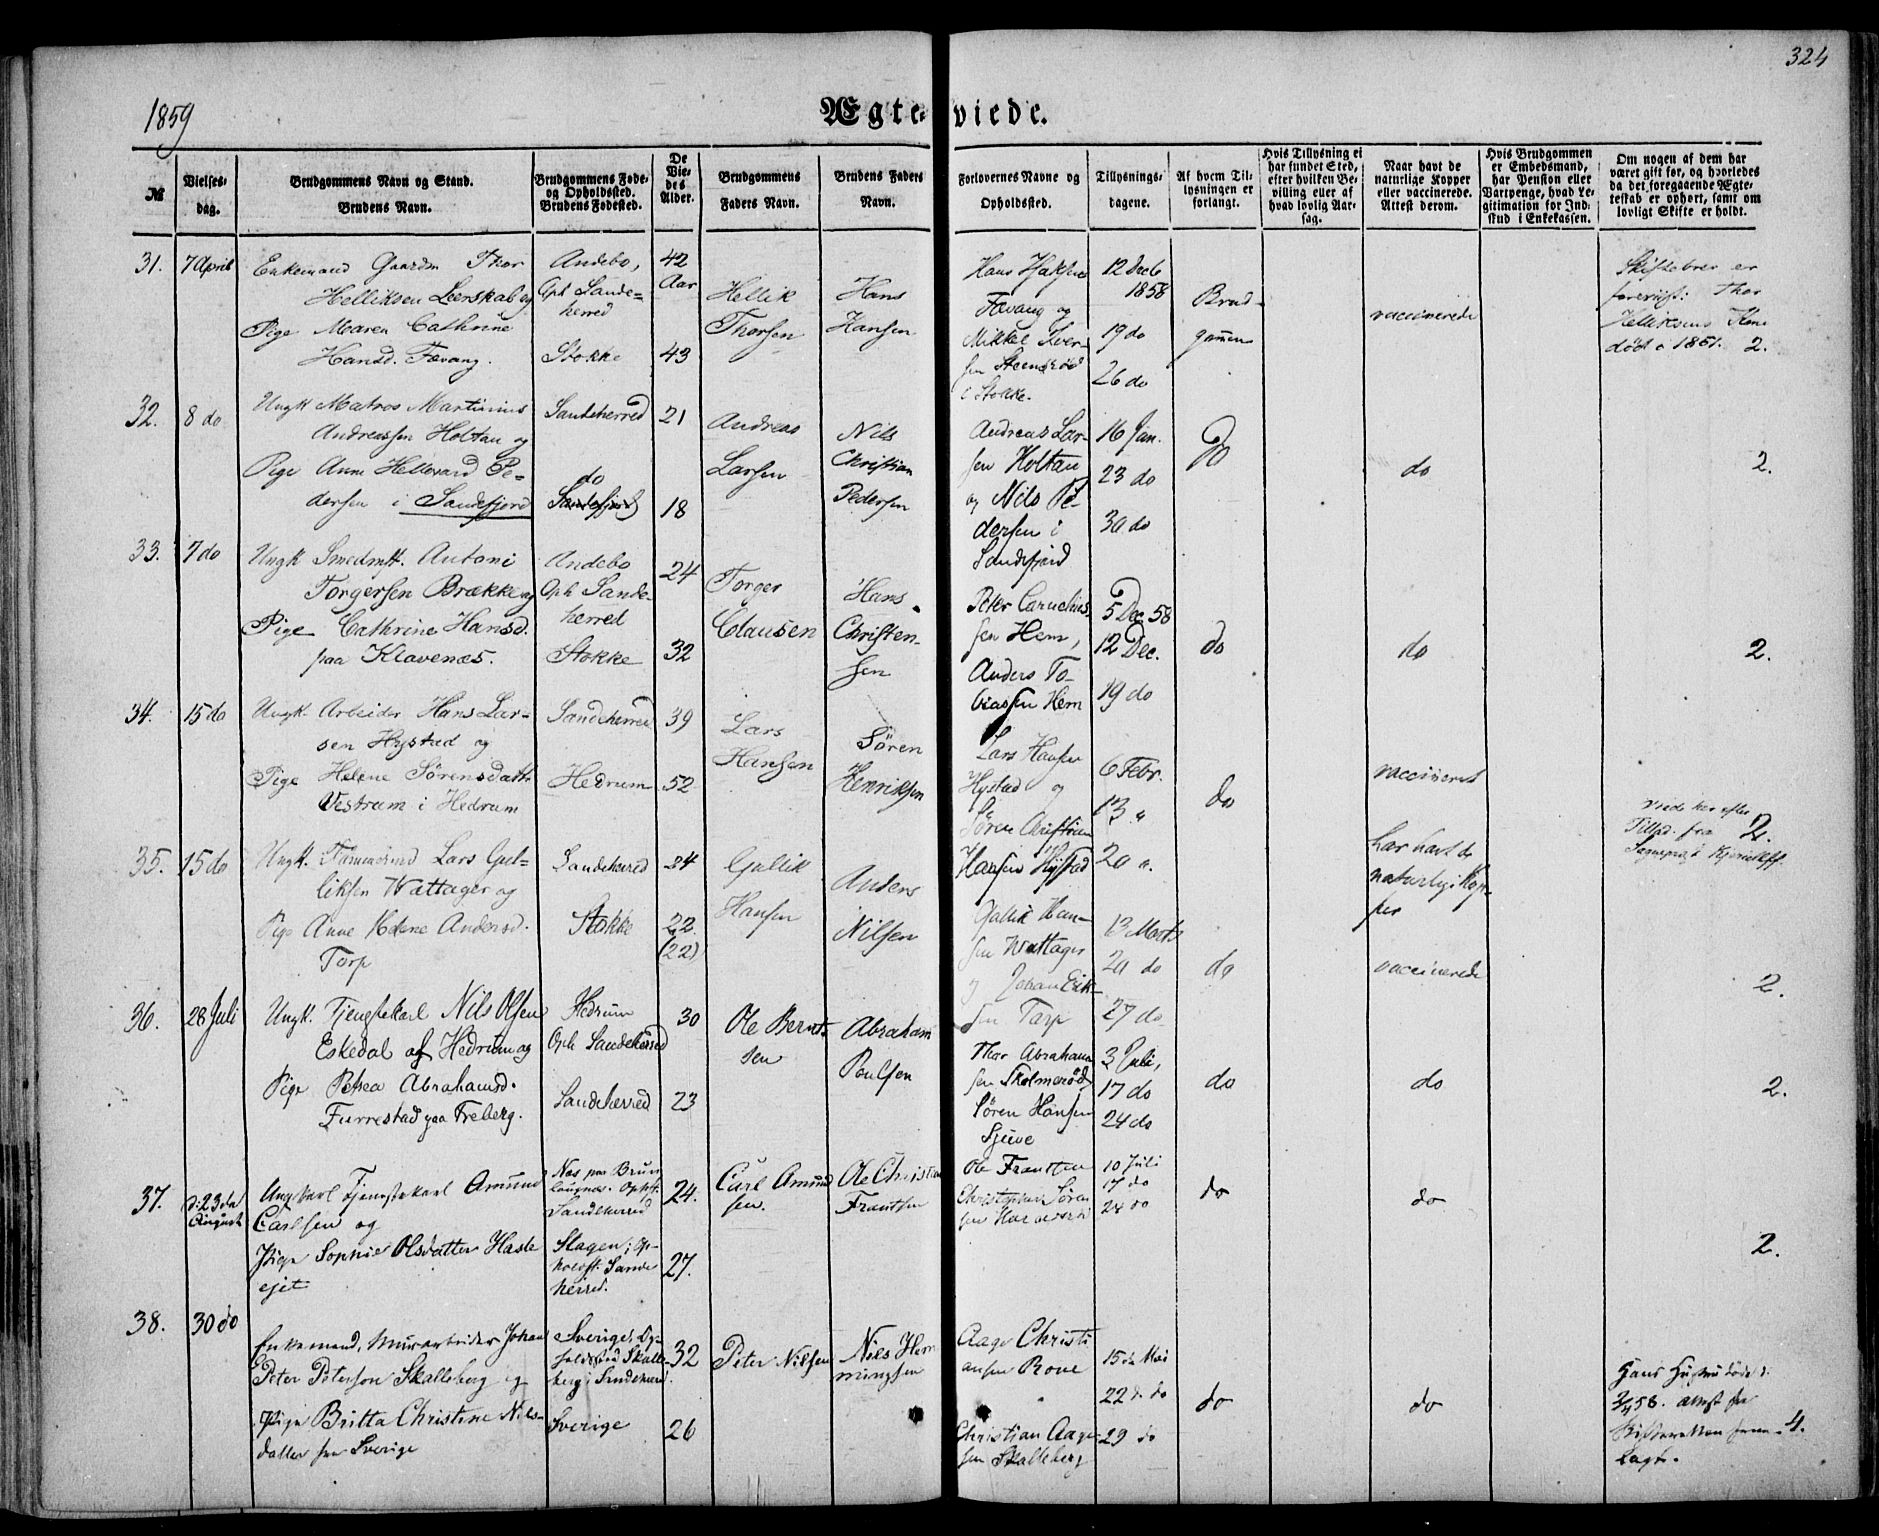 324
1859
Ægteviede.
№
Vielses-
dag.
Brudgommens Navn og Stand.
Brudens Navn.
Brudgommens Føde-
og Opholdssted.
Brudens Fødested.
De
Vie-
des
Alder.
Brudgommens
Faders Navn.
Brudens Faders
Navn.
Forlovernes Navne og
Opholdssted.
Tillysnings-
dagene.
Af hvem Til-
lysningen er
forlangt.
Hvis Tillysning ei
har fundet Sted,
efter hvilken Be-
villing eller af
hvad lovlig Aar-
sag.
Naar havt de
naturlige Kopper
eller vaccinerede.
Attest derom.
Hvis Brudgommen
er Embedsmand,
har Pension eller
Vartpenge, hvad Le-
gitimation for Ind-
skud i Enkekassen.
Om nogen af dem har
været gift før, og hvorledes
da det foregaaende Ægte-
teskab er ophørt, samt om
lovligt Skifte er holdt.
31.
7 April
Enkemand Gaardm Thor
Helliksen Leerskal og
Pige Maren Cathrine
Hansd. Fævang.
Andebo,
Oph Sande-
herred
Stokke
42
Aar
43
Hellik
Thorsen
Hans
Hansen
Hans
Fævang og
Mikkel Iver-
sen
i Stokke.
12 Dec
1858
19 do
26 do
Brud-
gommen
vaccinerede
Skiftebrev er
forevist: Thor
Helliksens Kone
død i 1851. 2.
32.
8 do
Ungk Matros Martinius
Andreassen Holtan og
Pige Anne Hellevard Pe-
dersen i Sandefjord
Sandeherred
do
Sandefjord
21
18
Andreas
Larsen
Nils
Christian
Pedersen
Andreas Lar-
sen Holtan
og Nils Pe-
dersen i
Sandefjord
16 Jan.
23 do
30 do
do
do
2.
33.
7 do
Ungk Smedmtt. Antoni
Torgersen Brække og
Pige Cathrine Hansd.
paa Klavenæs.
Andebo
Oph Sande-
herred
Stokke
24
32
Torger
Clausen
Hans
Christen-
sen
Peter Cornelius-
sen Hem,
Anders To-
biassen Hem
5 Dec. 58
12 Dec.
19 do
do
do
2.
34.
15 do
Ungk. Arbeider Hans Lar-
sen Hystad og
Pige Helene Sørensdatt.
Vestrum i Hedrum
Sandeherred
Hedrum
39
52
Lars
Hansen
Søren
Henriksen
Lars Hansen
Hystad og
Søren Christian
Hansen Hystad
6 Febr.
13 "
20 ".
do
vaccineret
har havt de
naturlige Kop-
per
viede her efter
Tillad. fra 2.
Sognepræst
35.
15 do
Ungk. Tømmermd Lars Gul-
liksen Wattager og
Pige Anne Helene Andersd.
Torp
Sandeherred
Stokke
24
22.
(22)
Gullik
Hansen
Anders
Nilsen
Gullik Han-
sen Wattager
og Johan Erik-
sen Tarp
13 Marts
20 do
27 do
do
vaccinerede
2.
36.
28 Juli
Ungk. Tjenestekarl Nils Olsen
Eskedal af Hedrum og
Pige Petrea Abrahamsd.
Furrestad paa Freberg.
Hedrum
Oph Sandeherred
Sandeherred
30
23
Ole Bernt-
sen
Abraham
Poulsen
Thor Abraham-
sen Skolmerød,
Søren Hansen
3 Juli,
17 do
24 do
do
do
2.
37.
d. 23de
August
Ungkarl Tjenestekarl Amund
Carlsen og
Pige Sophie Olsdatter Hasle
ejet
Næs paa Brun-
laugnæs. Oph.
Sandeherred
Slagen; Op-
holdst. Sande
herred.
24.
27.
Carl Amund
sen.
Ole Christian
Frantsen
Ole Frantsen
Christopher Søren
sen
10 Juli
17 do
24 do
do
do
2.
38.
30 do
Enkemand, Murarbeider Johan
Peter Peterson Skalleberg og
Pige Britta Christine Nils-
datter fra Sverige
Sverige; Op-
holdssted Skalle-
berg i Sandeherred.
Sverige
32
26
Peter Nilsen
Nils Hem
mingsen
Aage Christi
ansen Bove
Christian Aage-
sen Skalleberg
15 de Mai
22 d. do
29 do
do
do
Hans Hustru døde d.
58. attest fra
Skifteretten frem- 4.
lagt.